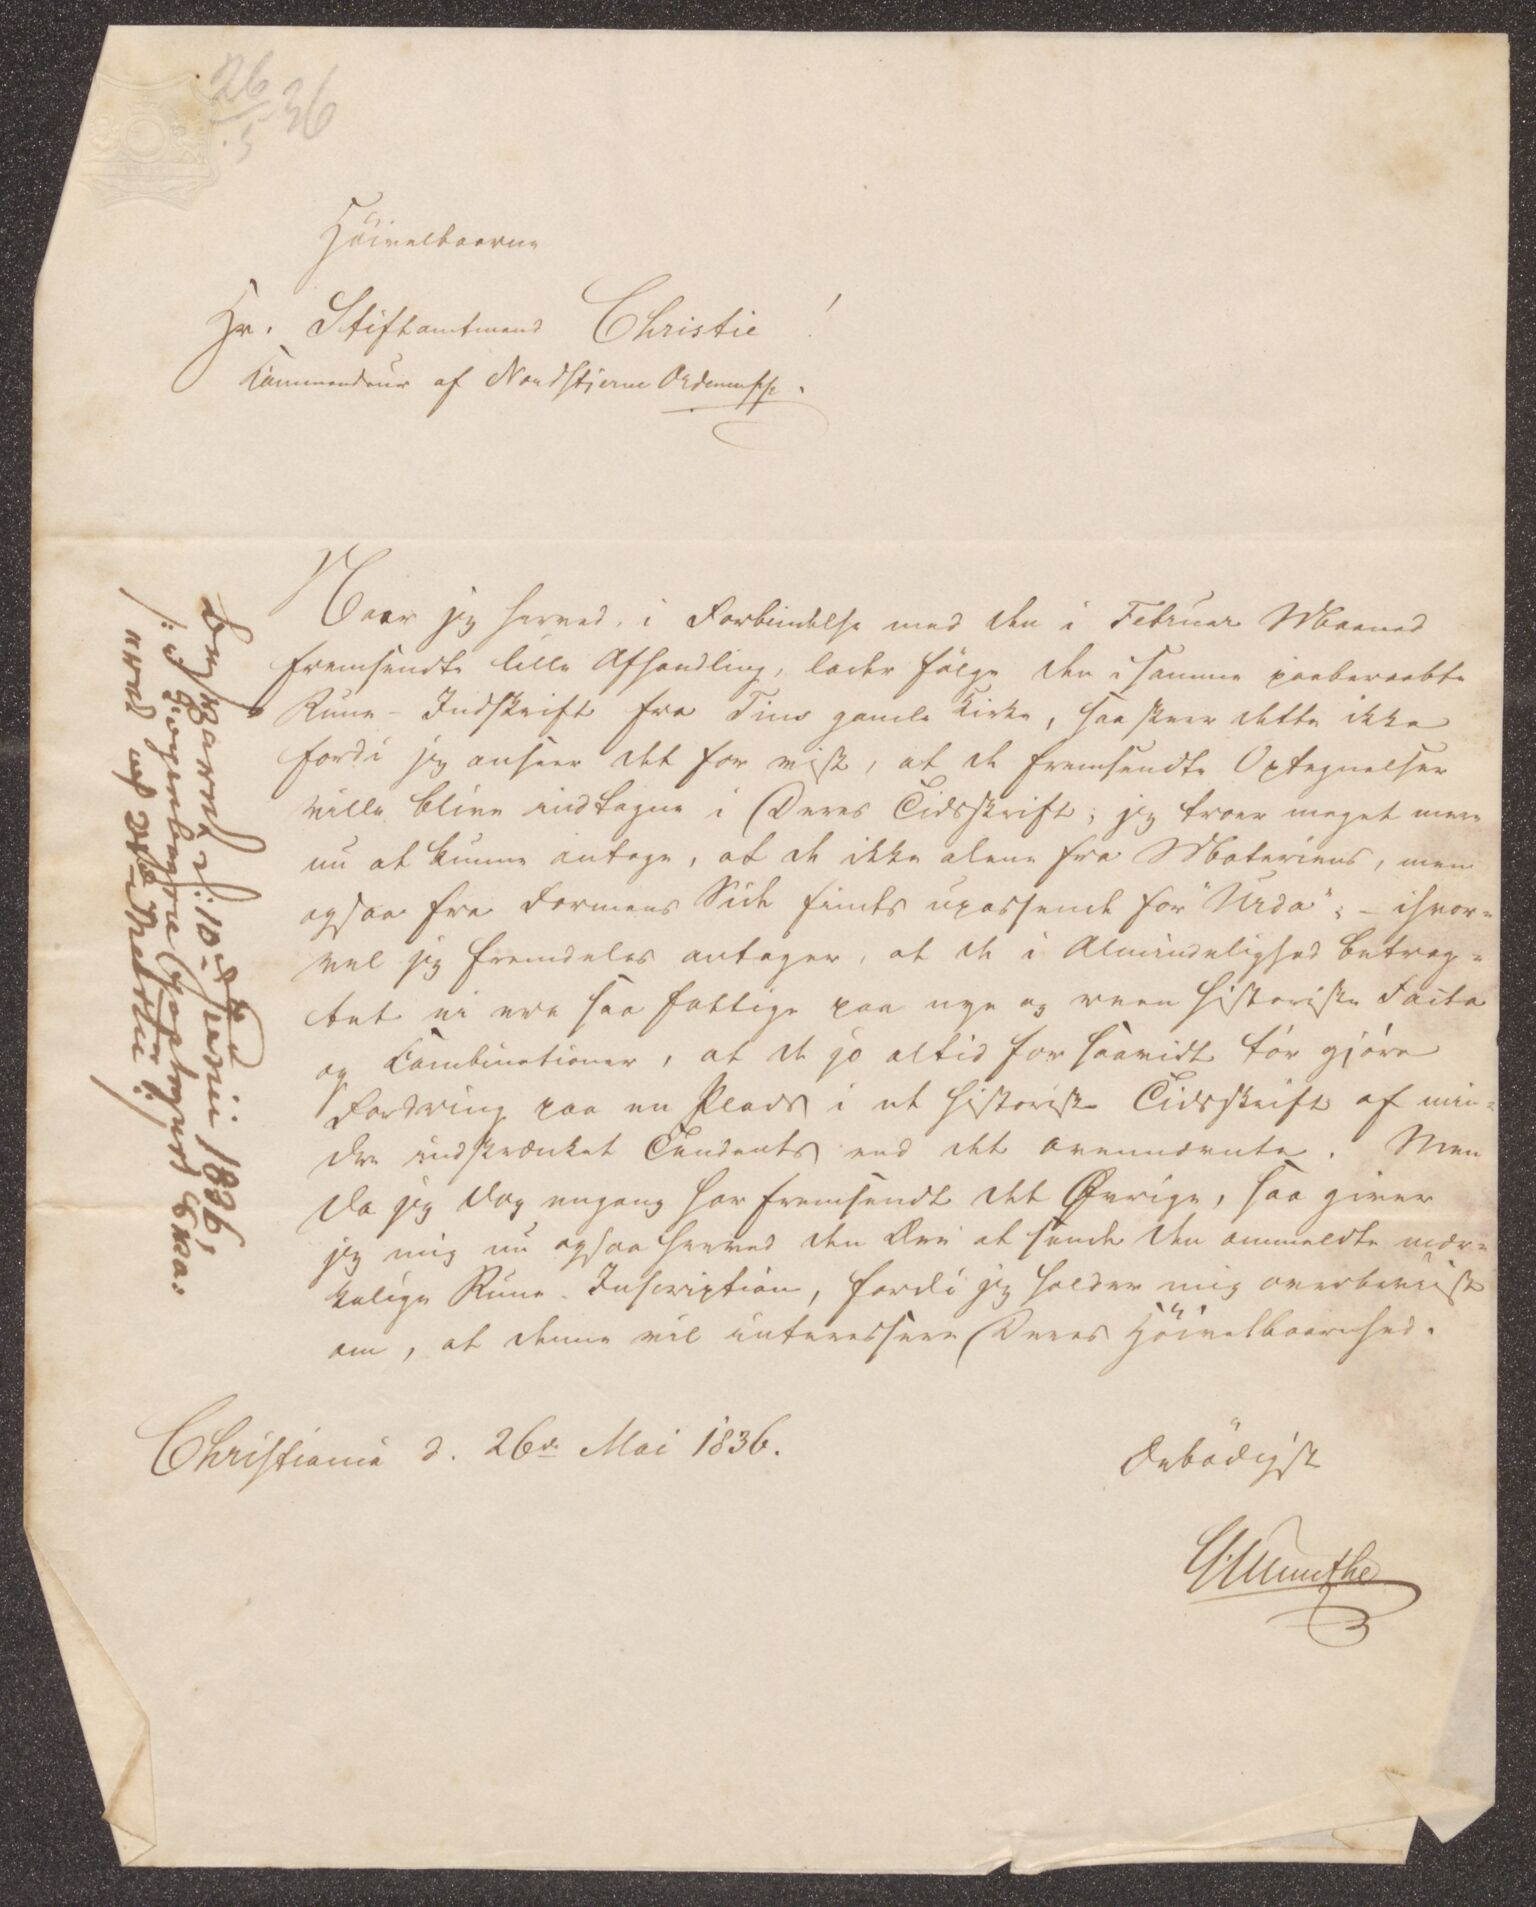 26/5 36
Höivelbaarne
Hr. Stiftamtmand Christie!
Commandeur af Nordstjerne Ordenen pp.
Naar jeg herved, i Forbindelse med den i Februar Maaned
fremsendte lille Afhandling, lader fölge den i samme paaberaabte
Rune-Indskrift fra Tins gamle Kirke, saa skeer dette ikke
fordi jeg anseer det for vist, at de fremsendte Optegnelser
ville blive indtagne i Deres Tidsskrift; jeg troer meget mere
nu at kunne antage, at de ikke alene fra Materiens, men
ogsaa fra Formens Side findes upassende for "Urda"; - ihvor-
vel jeg fremdeles antager, at de i Almindelighed betrag-
tet ei ere saa fattige paa nye og reen historiske Facta
og Combinationer, at de jo altid for saavidt tör gjöre
Fordring paa en Plads i et historisk Tidsskrift af min-
dre indskrænket Tendents end det ovennævnte. Men
da jeg dog engang har fremsendt det Øvrige, saa giver
jeg mig nu ogsaa herved den Ære at sende den ommeldte mær-
kelige Rune-Inscription, fordi jeg holder mig overbeviist
om, at denne vil interessere Deres Höivelbaarenhed.
Christiania d. 26de Mai 1836.
Ærbödigst
G. Munthe
Besvaret d: 10de Junii 1836,
/: i Brevet til
med af :/